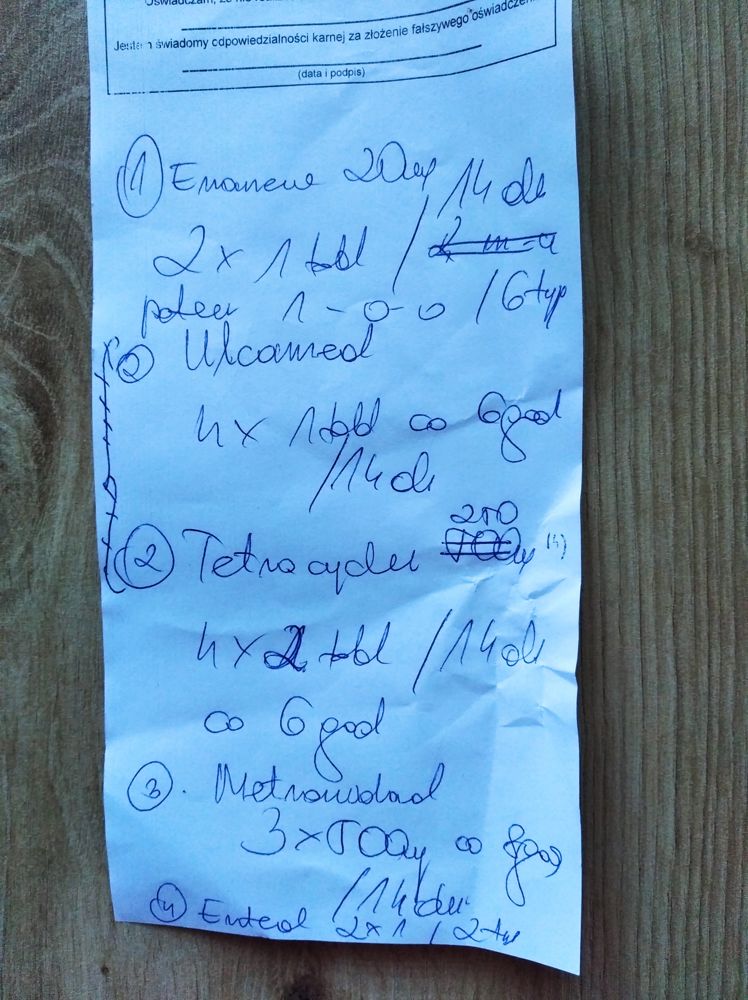 Oświadczam, że nie
Jestem świadomy odpowiedzialności karnej za złożenie fałszywego oświadczenia
(data i podpis)
1 Emanera 20mg / 14 dni
2 x 1 tabl /
potem 1-0-0 / 6 tyg
2 Ulcamed
4 x 1 tabl co 6 god
/ 14 dni
2 Tetracyclin 250 mg
4 x 2 tabl / 14 dni
co 6 god
3. Metronidazol
3 x 500mg co 8 god
/ 14 dni
4 Enterol 2x1 / 2 tyg